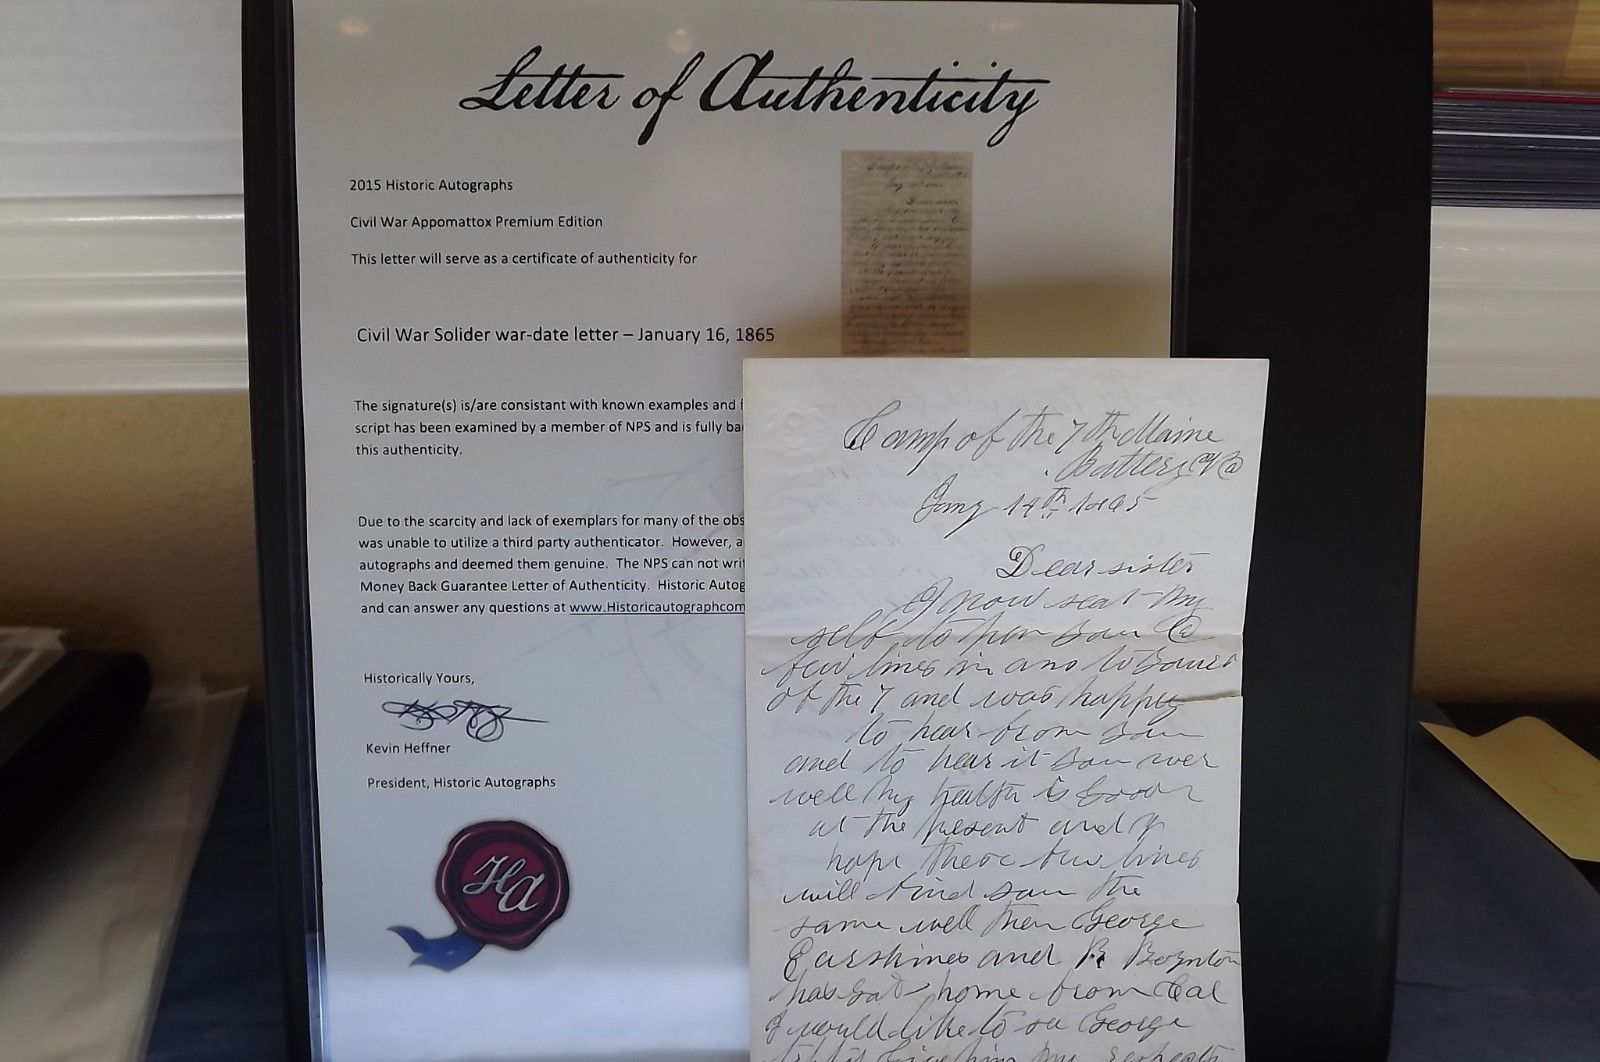 Letter of Authenticity
2015 Historic Autographs
Civil War Appomattox Premium Edition
This letter will serve as a certificate of authenticity for
Civil War Solider war-date letter – January 16, 1865
The signature(s) is/are consistent with known examples and
script has been examined by a member of NPS and is fully
this authenticity.
Due to the scarcity and lack of exemplars for many of the
was unable to utilize a third party authenticator. However,
autographs and deemed them genuine. The NPS can not
Money Back Guarantee Letter of Authenticity. Historic
and can answer any questions at www.Historicautographcom
Historically Yours,
Kevin Heffner
President, Historic Autographs
HA
Camp of the 7th Maine
Battery
14th 1865
Dear sister
I now seat my
self to pen you a
few lines in ans to yours
of the 7 and was happy
to hear from you
and to hear it you wer
well my health is good
at the present and I
hope these few lines
will find you the
same well then George
and B. Boynton
has got home from Cal
I would like to see George
give him my respects